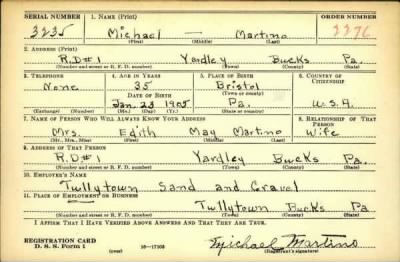 SERIAL NUMBER 1. NAME (Print) ORDER NUMBER
3235 Michael — Martino 2276
(First) (Middle) (Last)
2. ADDRESS (Print)
R.D.#1 Yardley Bucks Pa.
(Number and street or R. F. D. number) (Town) (County) (State)
3. TELEPHONE 4. AGE IN YEARS 5. PLACE OF BIRTH 6. COUNTRY OF CITIZENSHIP
None 35 Bristol
DATE OF BIRTH (Town or county)
Jan. 23 1905 Pa. U.S.A.
(Exchange) (Number) (Mo.) (Day) (Yr.) (State or country)
7. NAME OF PERSON WHO WILL ALWAYS KNOW YOUR ADDRESS 8. RELATIONSHIP OF THAT PERSON
Mrs. Edith May Martino Wife
(Mr., Mrs., Miss) (First) (Middle) (Last)
9. ADDRESS OF THAT PERSON
R.D.#1 Yardley Bucks Pa.
(Number and street or R. F. D. number) (Town) (County) (State)
10. EMPLOYER'S NAME
Tullytown Sand and Gravel
11. PLACE OF EMPLOYMENT OR BUSINESS
Tullytown Bucks Pa
(Number and street or R. F. D. number) (Town) (County) (State)
I AFFIRM THAT I HAVE VERIFIED ABOVE ANSWERS AND THAT THEY ARE TRUE.
REGISTRATION CARD
D. S. S. Form 1 (over) 16—17105 Michael Martino
(Registrant's signature)